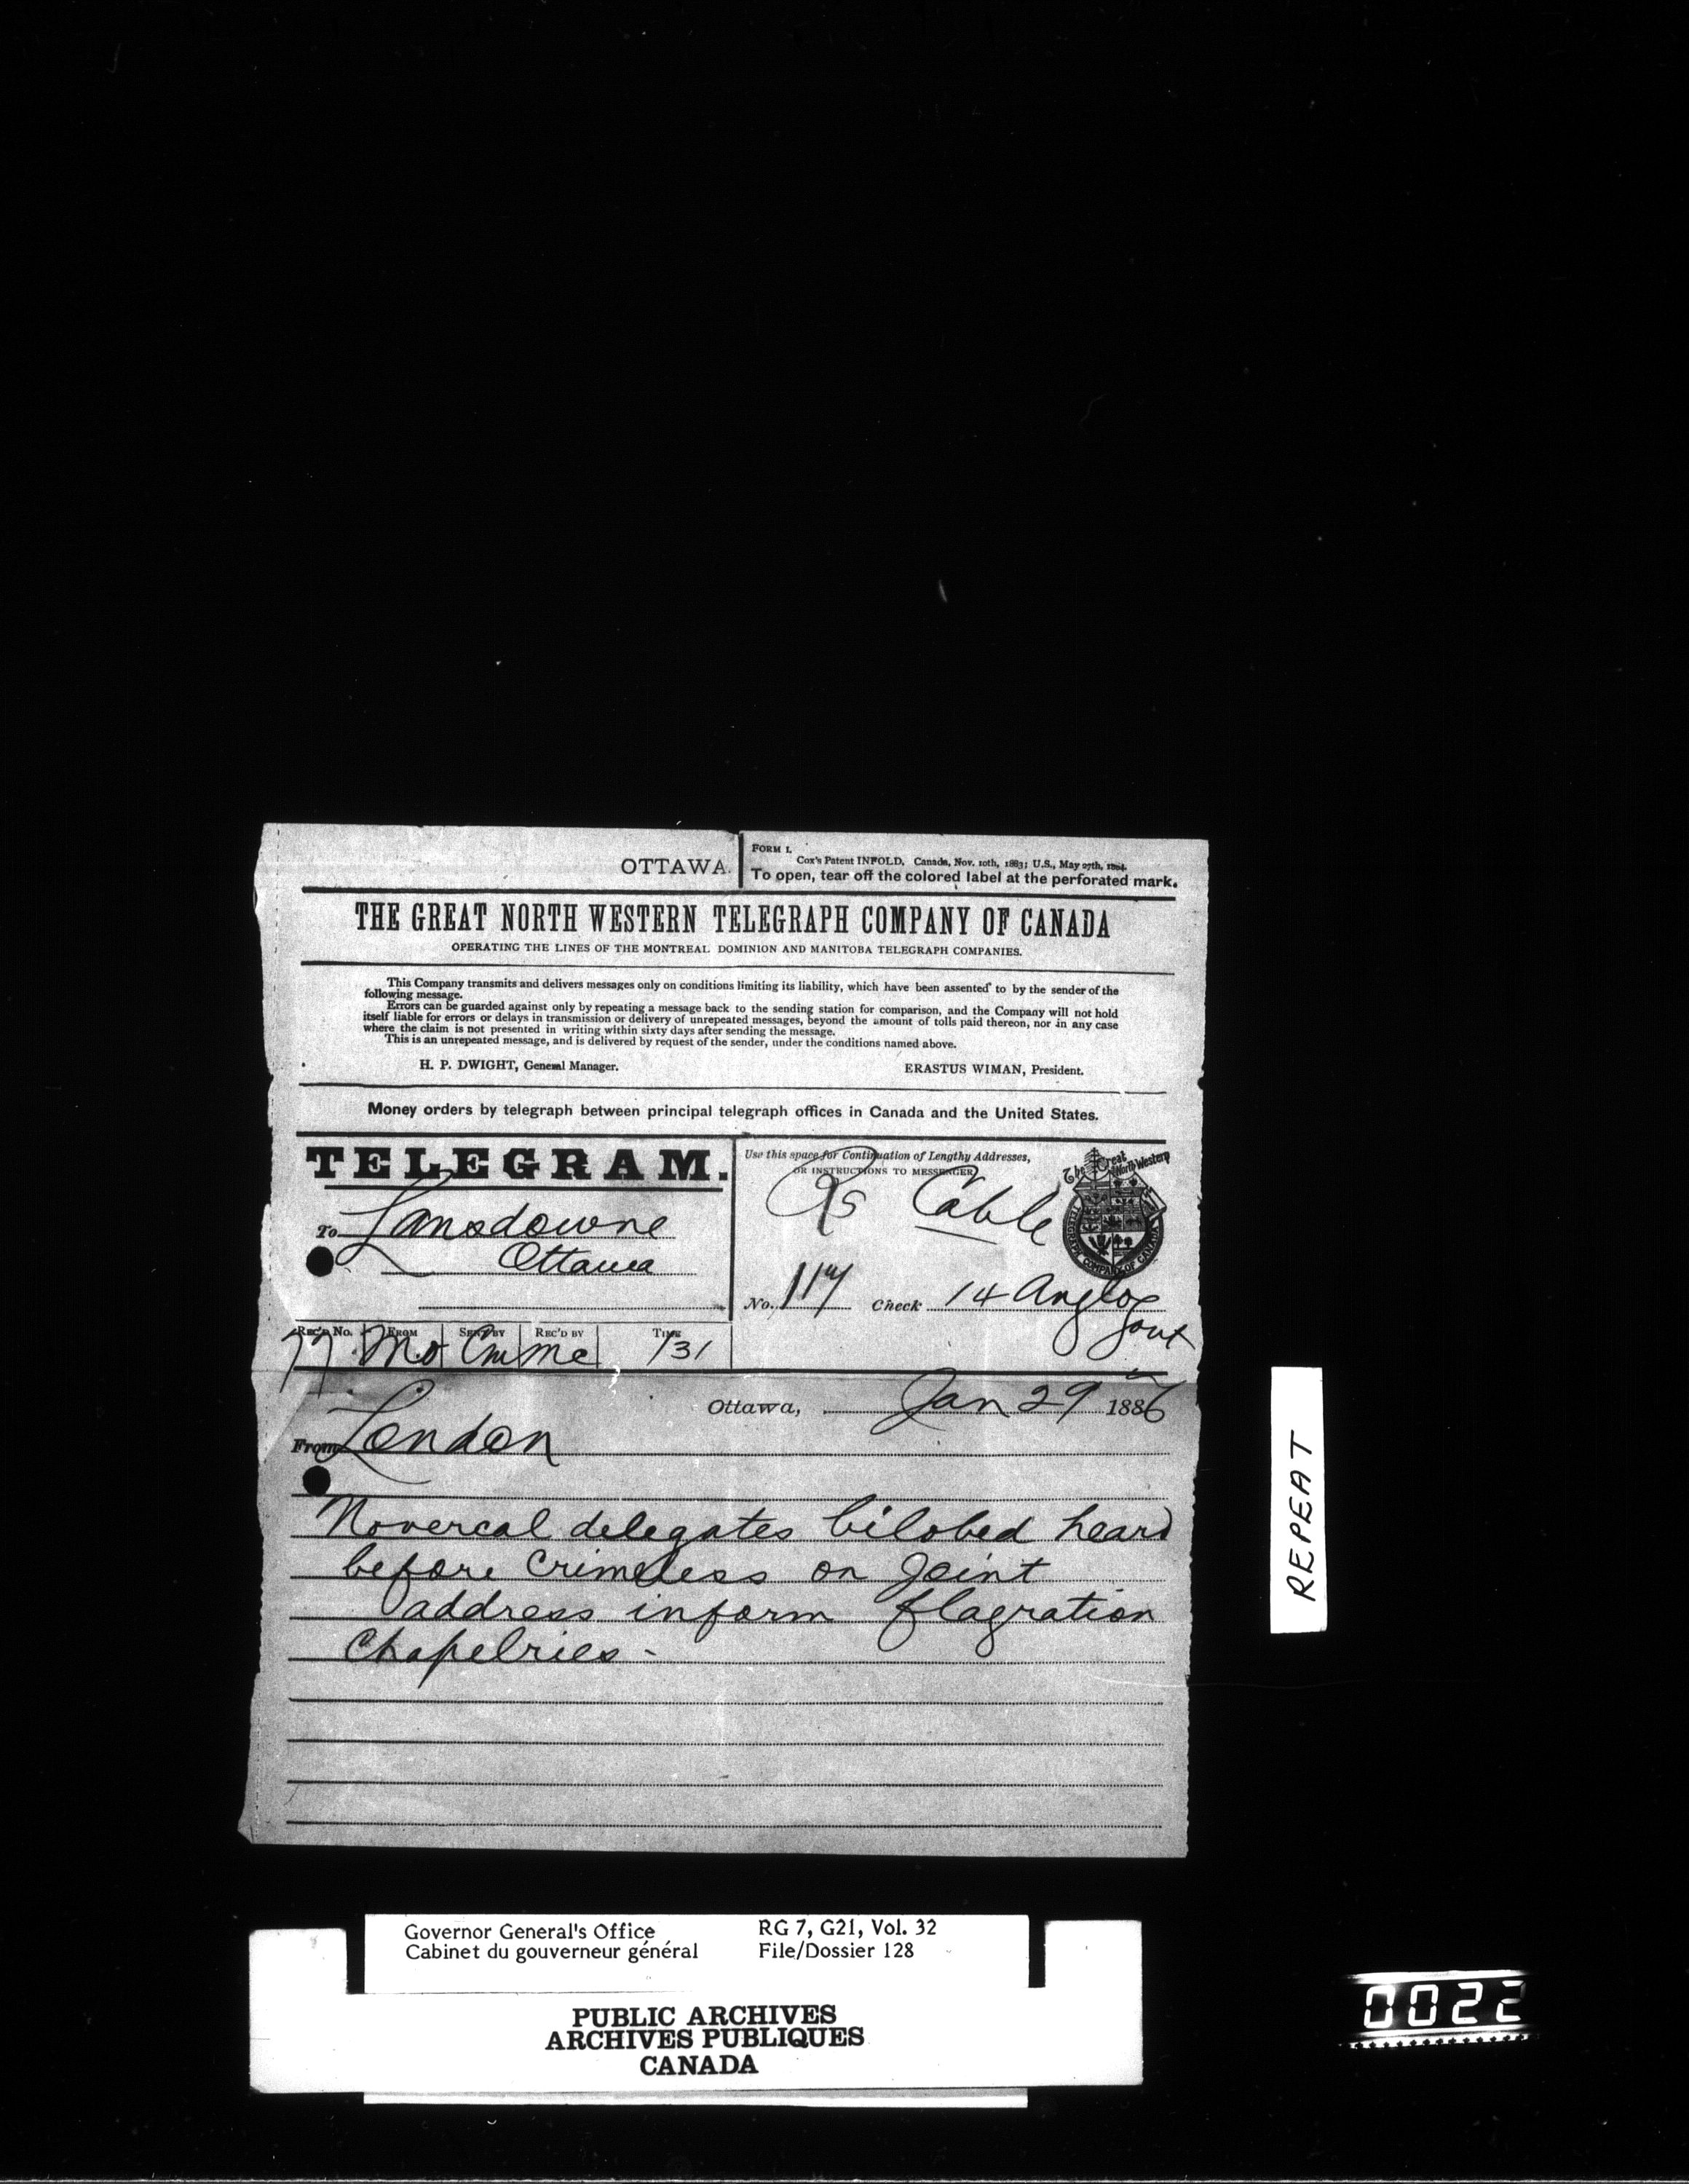 OTTAWA.
FORM 1.
Cox's Patent INFOLD, Canada, Nov. 10th, 1883; U.S., May 27th, 1884.
To open, tear off the colored label at the perforated mark.
THE GREAT NORTH WESTERN TELEGRAPH COMPANY OF CANADA
OPERATING THE LINES OF THE MONTREAL DOMINION AND MANITOBA TELEGRAPH COMPANIES.
This Company transmits and delivers messages only on conditions limiting its liability, which have been assented to by the sender of the
following message.
Errors can be guarded against only by repeating a message back to the sending station for comparison, and the Company will not hold
itself liable for errors or delays in transmission or delivery of unrepeated messages, beyond the amount of tolls paid thereon, nor in any case
where the claim is not presented in writing within sixty days after sending the message.
This is an unrepeated message, and is delivered by request of the sender, under the conditions named above.
H. P. DWIGHT, General Manager.
ERASTUS WIMAN, President.
Money orders by telegraph between principal telegraph offices in Canada and the United States.
TELEGRAM.
Use this space for Continuation of Lengthy Addresses,
OR INSTRUCTIONS TO MESSENGER
Cable
The Great North Western
TELEGRAPH COMPANY OF CANADA
To Lansdowne
Ottawa
No. 117 Check 14 Anglo
Govt
REC'D No. FROM SENT BY REC'D BY TIME
77 Mo Cm me 131
Ottawa, Jan 29 1886
From London
Novercal delegates bilobed heard
before crimeless on joint
address inform flagration
Chapelries -
REPEAT
Governor General's Office
Cabinet du gouverneur général
RG 7, G21, Vol. 32
File/Dossier 128
PUBLIC ARCHIVES
ARCHIVES PUBLIQUES
CANADA
0022